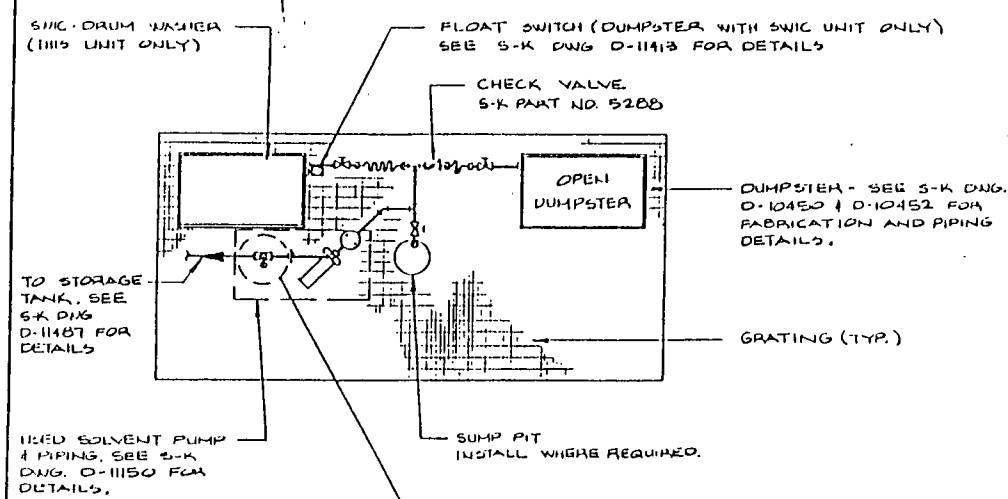 SWIC-DRUM WASHER
(THIS UNIT ONLY)
FLOAT SWITCH (DUMPSTER WITH SWIC UNIT ONLY)
SEE S-K DWG D-11413 FOR DETAILS
CHECK VALVE
S-K PART NO. 5288
OPEN
DUMPSTER
DUMPSTER - SEE S-K DWG.
D-10450 & D-10452 FOR
FABRICATION AND PIPING
DETAILS.
TO STORAGE
TANK, SEE
S-K DWG
D-11487 FOR
DETAILS
GRATING (TYP.)
USED SOLVENT PUMP
& PIPING, SEE S-K
DWG. D-11150 FOR
DETAILS.
SUMP PIT
INSTALL WHERE REQUIRED.